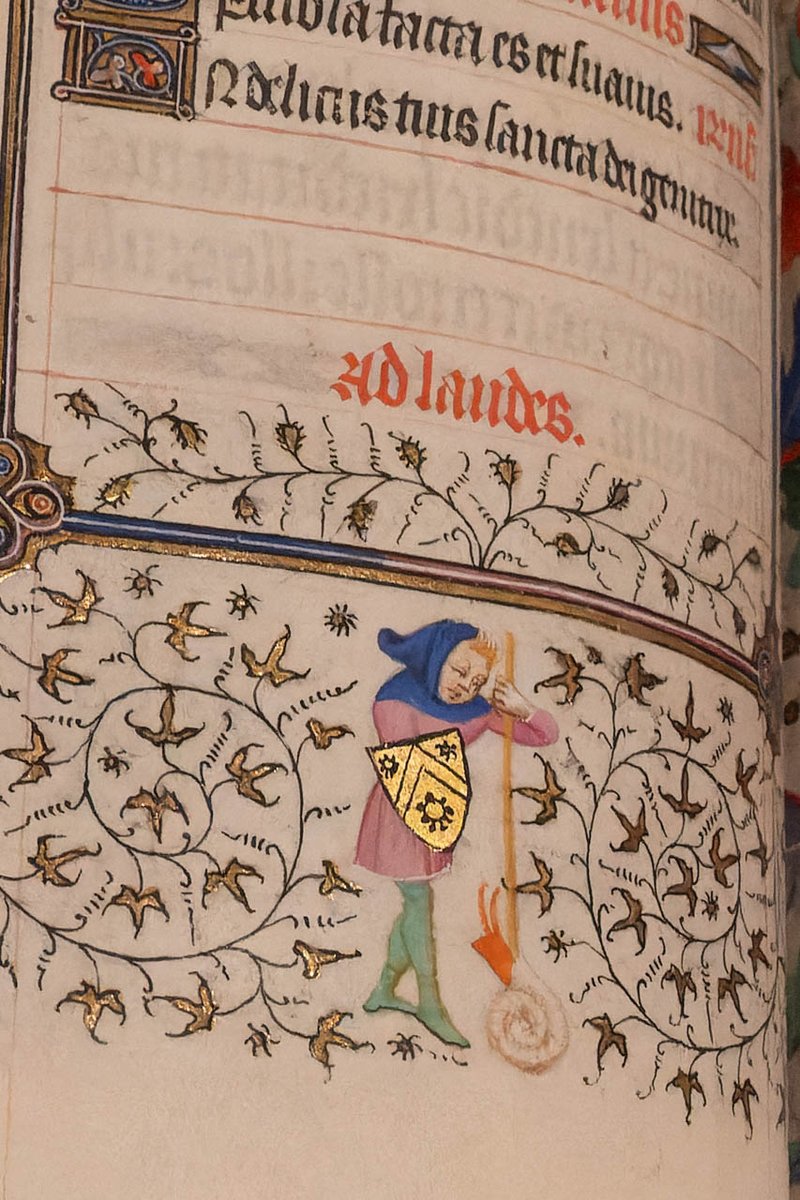 facta es et suauis.
N deliciis tuis sancta dei genitrix.
Ad laudes.